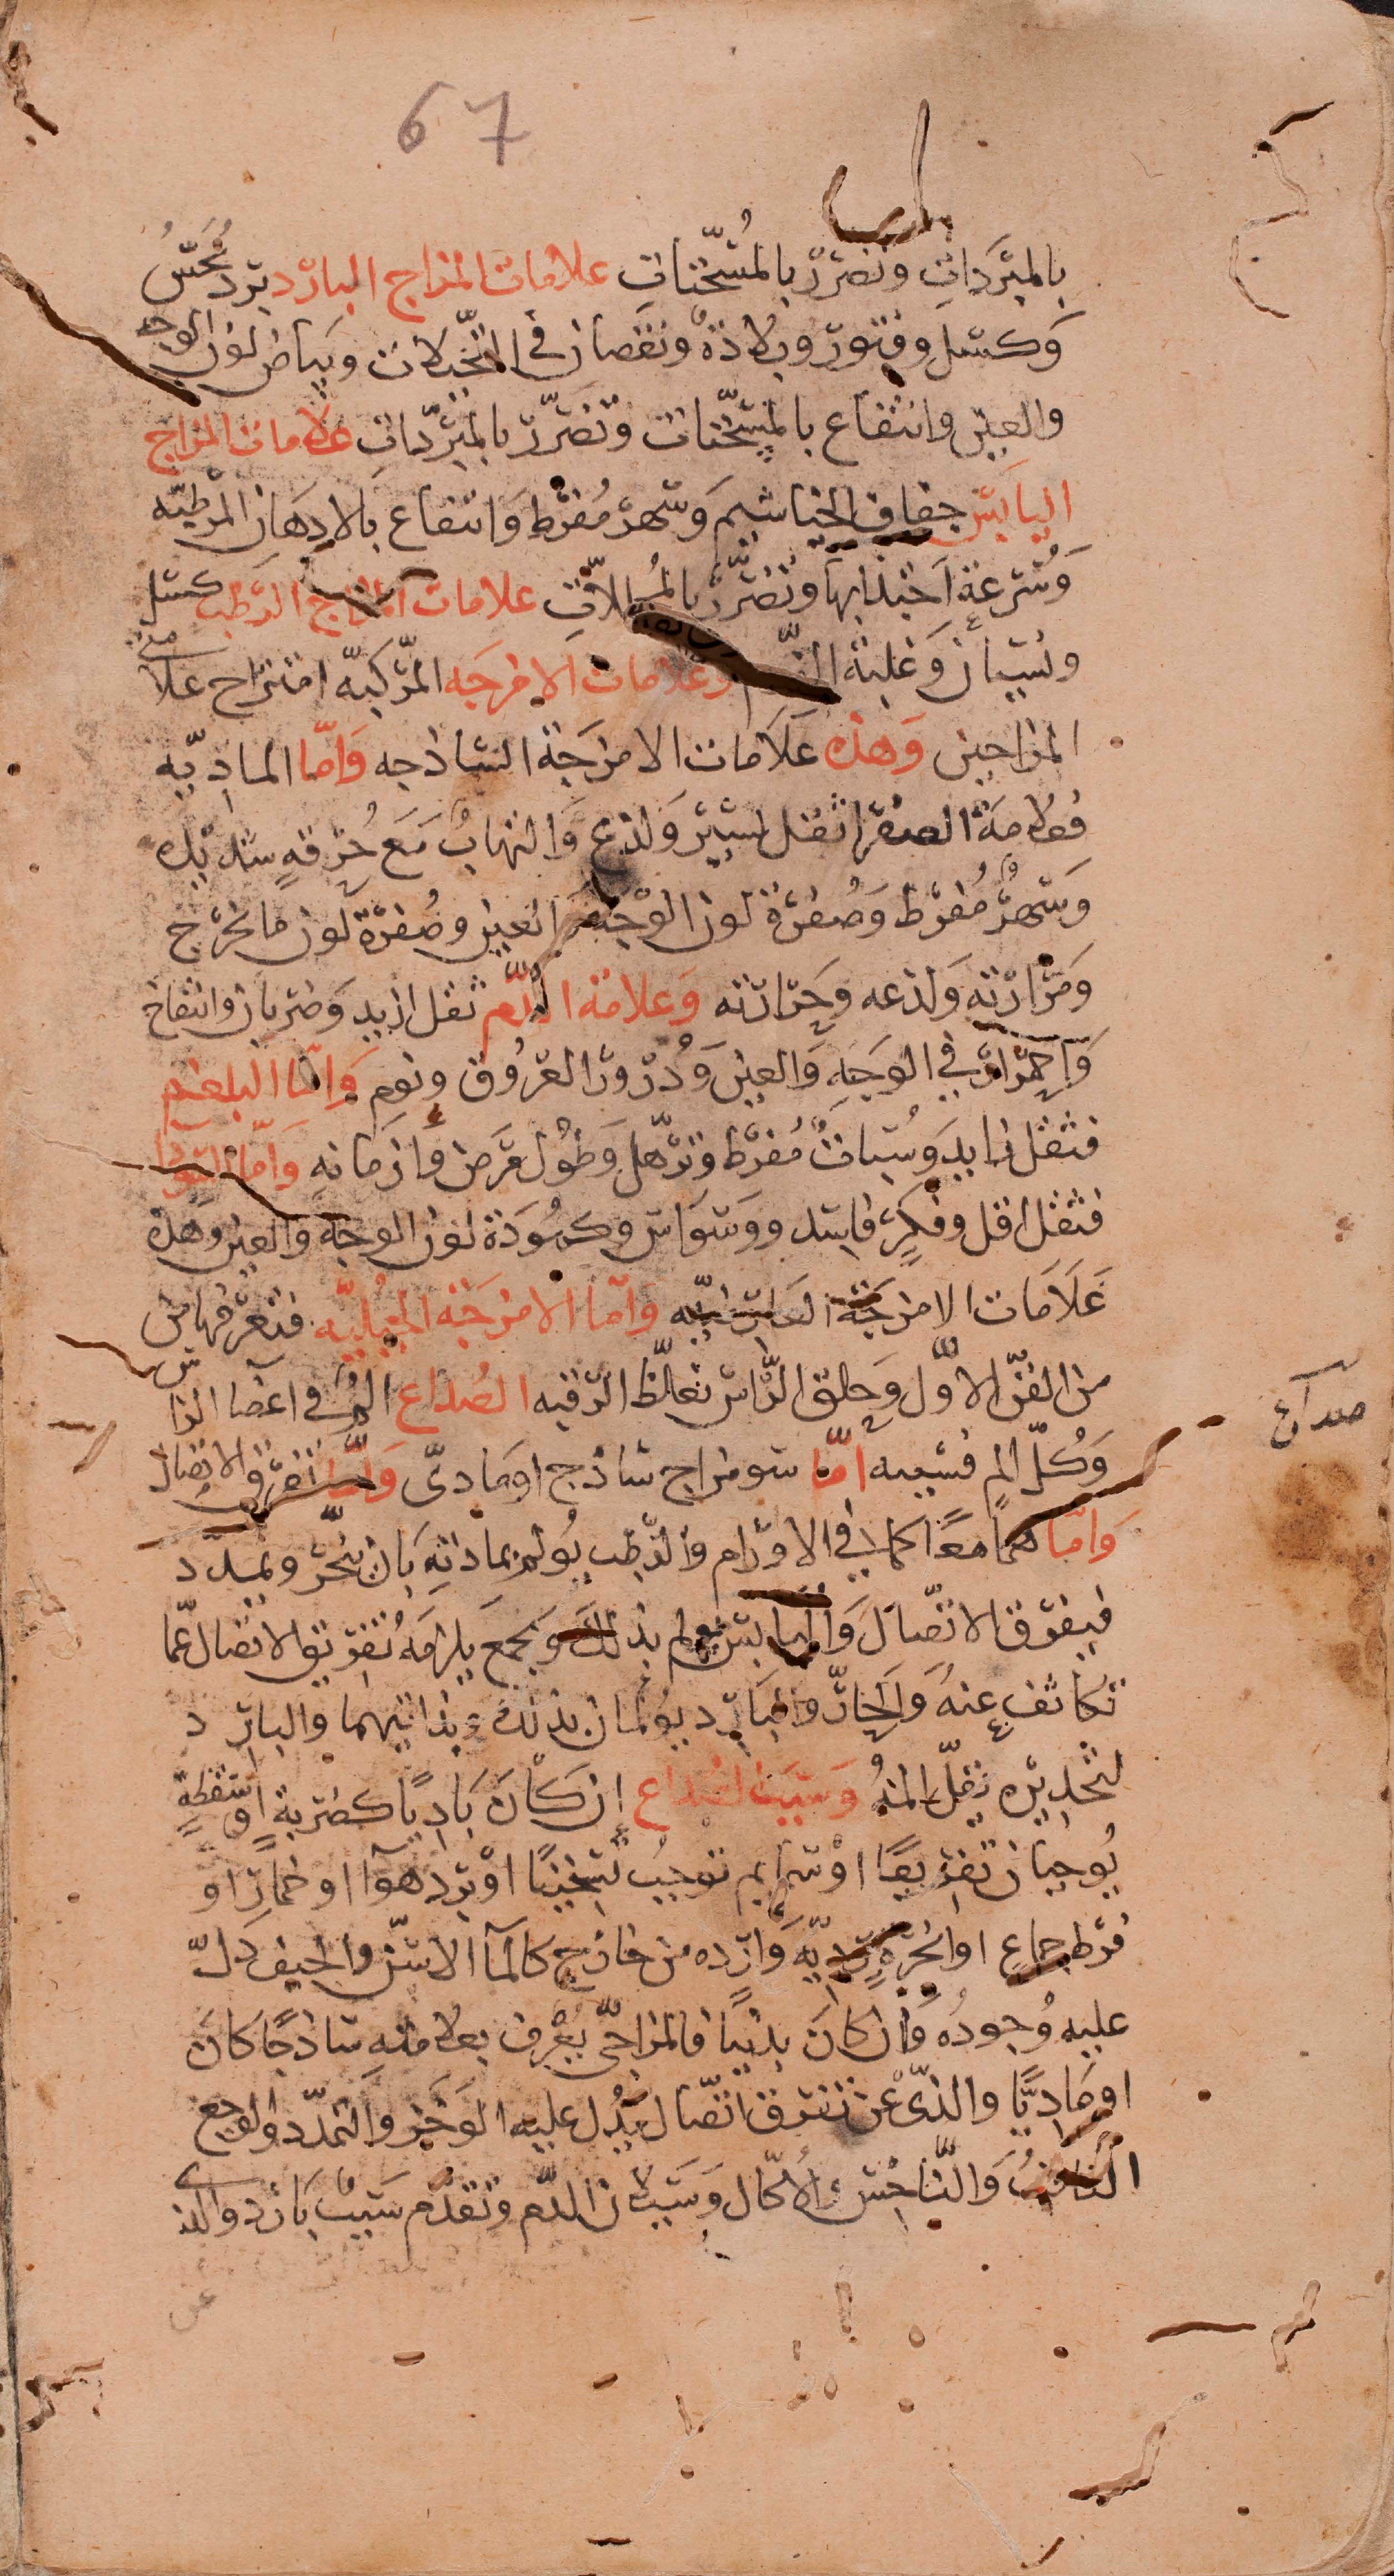 67
بالمبردات وتضرر بالمسخنات علامات المزاج البارد برد يحس
وكسل وفتور وبلادة ونقصان في التخيلات وبياض لون الوجه
والعين وانتفاع بالمسخنات وتضرر بالمبردات علامات المزاج
اليابس جفاف الخياشيم وسهر مفرط وانتفاع بالادهان المرطبه
وسرعة اجتذابها وتضرر علامات المزاج الرطب كسل
ونسيان وغلبة وعلامات الامزجه المركبه امتزاج علامتي
المزاجين وهذه علامات الامزجة الساذجه واما الماديه
فعلامة الصفرا ثقل يسير ولذع والتهاب مع حرقه شديده
وسهر مفرط وصفرة لون الوجه والعين وصفرة لون ما يخرج
ومرارته ولذعه وحرارته وعلامة الدم ثقل ازيد وضربان وانتفاخ
واحمرار في الوجه والعين ودرور العروق ونوم واما البلغم
فثقل زايد وسبات مفرط وترهل وطول مرض وازمانه واما السودا
فثقل اقل وفكر فاسد ووسواس وكمودة لون الوجه والعين وهذه
علامات الامزجة العارضيه واما الامزجة الجبليه فتعرفها من
من الفن الاول وحلق الراس تغلظ الرقبه الصداع الم في اعضا الراس
وكل الم فسببه اما سو مزاج ساذج او مادي واما تفرق الاتصال
واما هما معا كما في الاورام والرطب يولم بمادته بان يبخر ويمدد
فيفرق الاتصال واليابس يولم بذلك وبجمع يلزمه تفريق الاتصال عما
تكاثف عنه والحار والبارد يولمان بذلك وبذاتيهما والبارد
لتخديره يقل المه وسبب الصداع ان كان باديا كضربة او سقطة
يوجبان تفريقا او سمايم توجب تسخينا او برد هوا او خمار او
فرط جماع او ابخرة ردية وارده من خارج كالما الاسن والجيف دل
عليه وجوده وان كان بدنيا فالمزاجي يعرف بعلامته ساذجا كان
او ماديا والذي عن تفرق اتصال يدل عليه الوخز والتمدد والوجع
الثاقب والناخس والاكال وسيلان الدم وتقدم سبب بارد والذي
عن
صداع